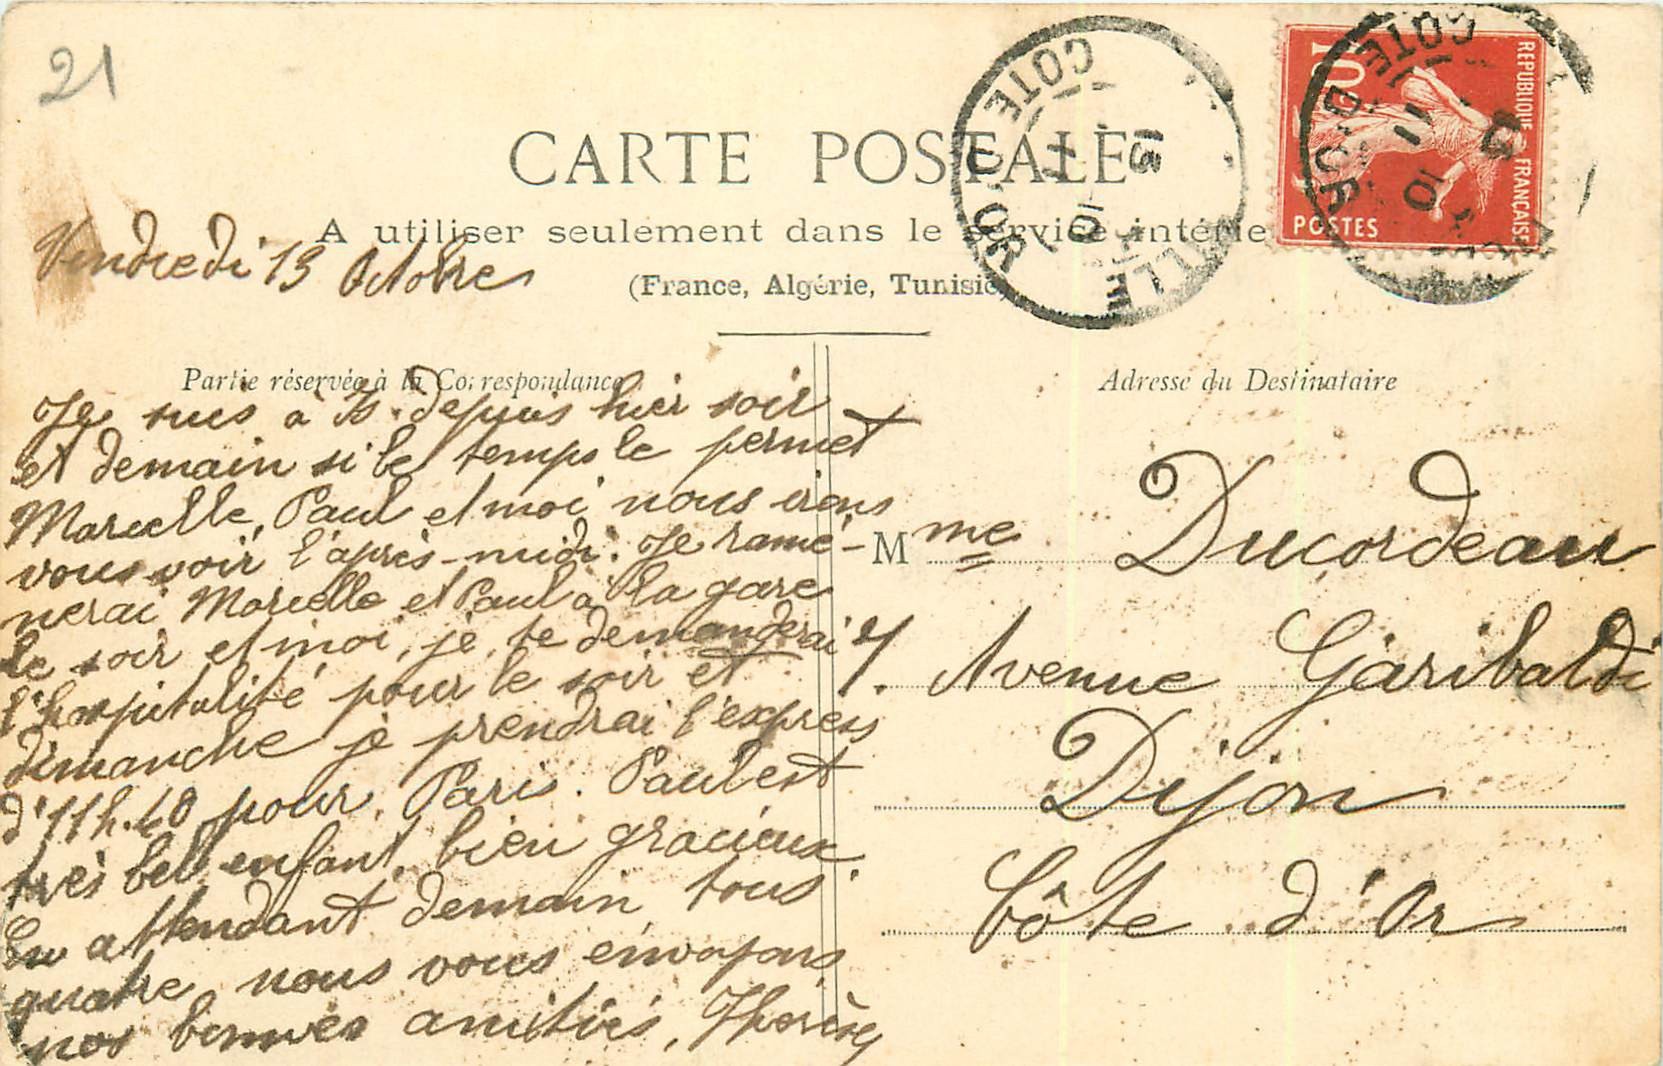 21
CARTE POSTALE
A utiliser seulement dans le service intérie
(France, Algérie, Tunisie)
COTE D'OR
13
10
REPUBLIQUE FRANÇAISE
10
POSTES
COTE D'OR
11
10
Vendredi 13 Octobre
Partie réservée à la Correspondance
Je suis à Is. depuis hier soir
et demain si le temps le permet
Marcelle, Paul et moi nous irons
vous voir l'après-midi. Je ramè-
nerai Marcelle et Paul à la gare
le soir et moi, je te demanderai
l'hospitalité pour le soir et
dimanche je prendrai l'express
d'11h.40 pour Paris. Paul est
très bel enfant, bien gracieux.
En attendant demain, tous
quatre nous vous envoyons
nos bonnes amitiés, Thérèse
Adresse du Destinataire
Mme Ducordeau
7. Avenue Garibaldi
Dijon
Côte d'Or